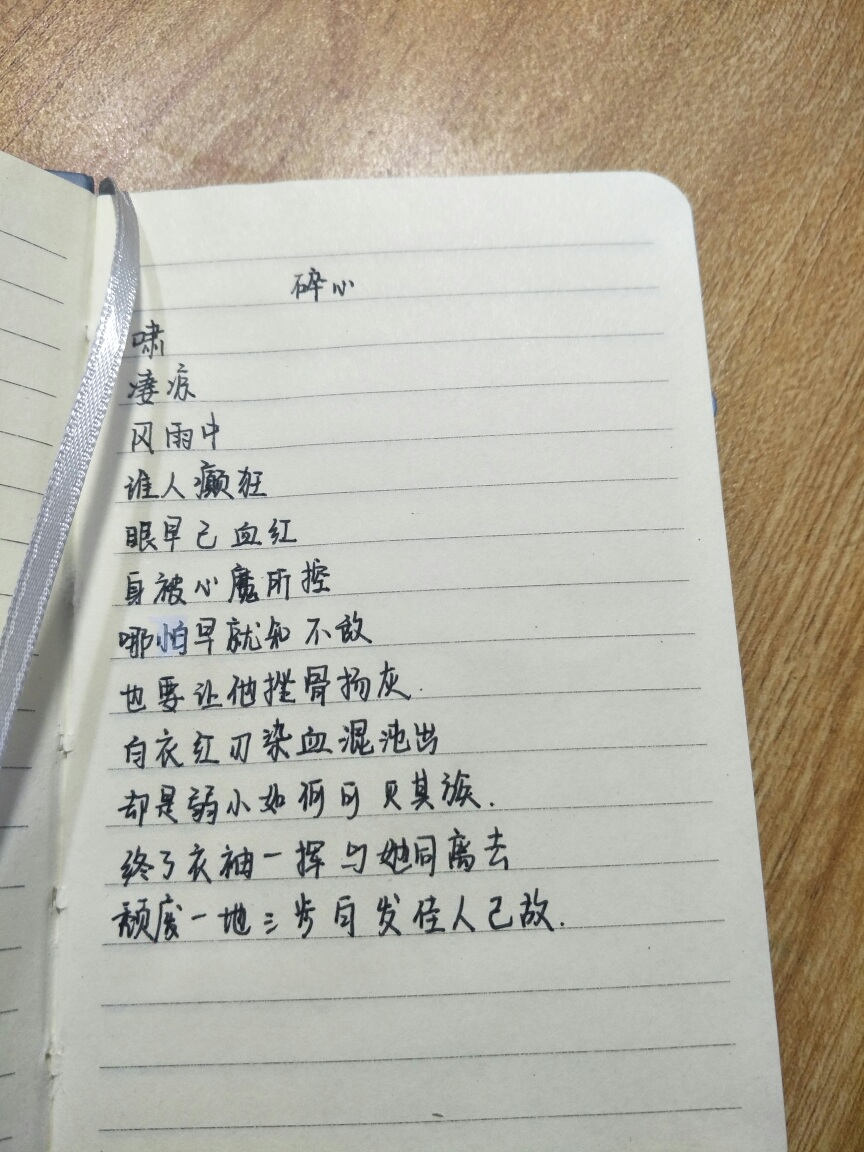 碎心
啸
凄凉
风雨中
谁人癫狂
眼早已血红
身被心魔所控
哪怕早就知不敌
也要让他挫骨扬灰.
白衣红刃染血混沌出
却是弱小如何可灭其族.
终了衣袖一挥与她同离去
颓废一地三步白发佳人已故.